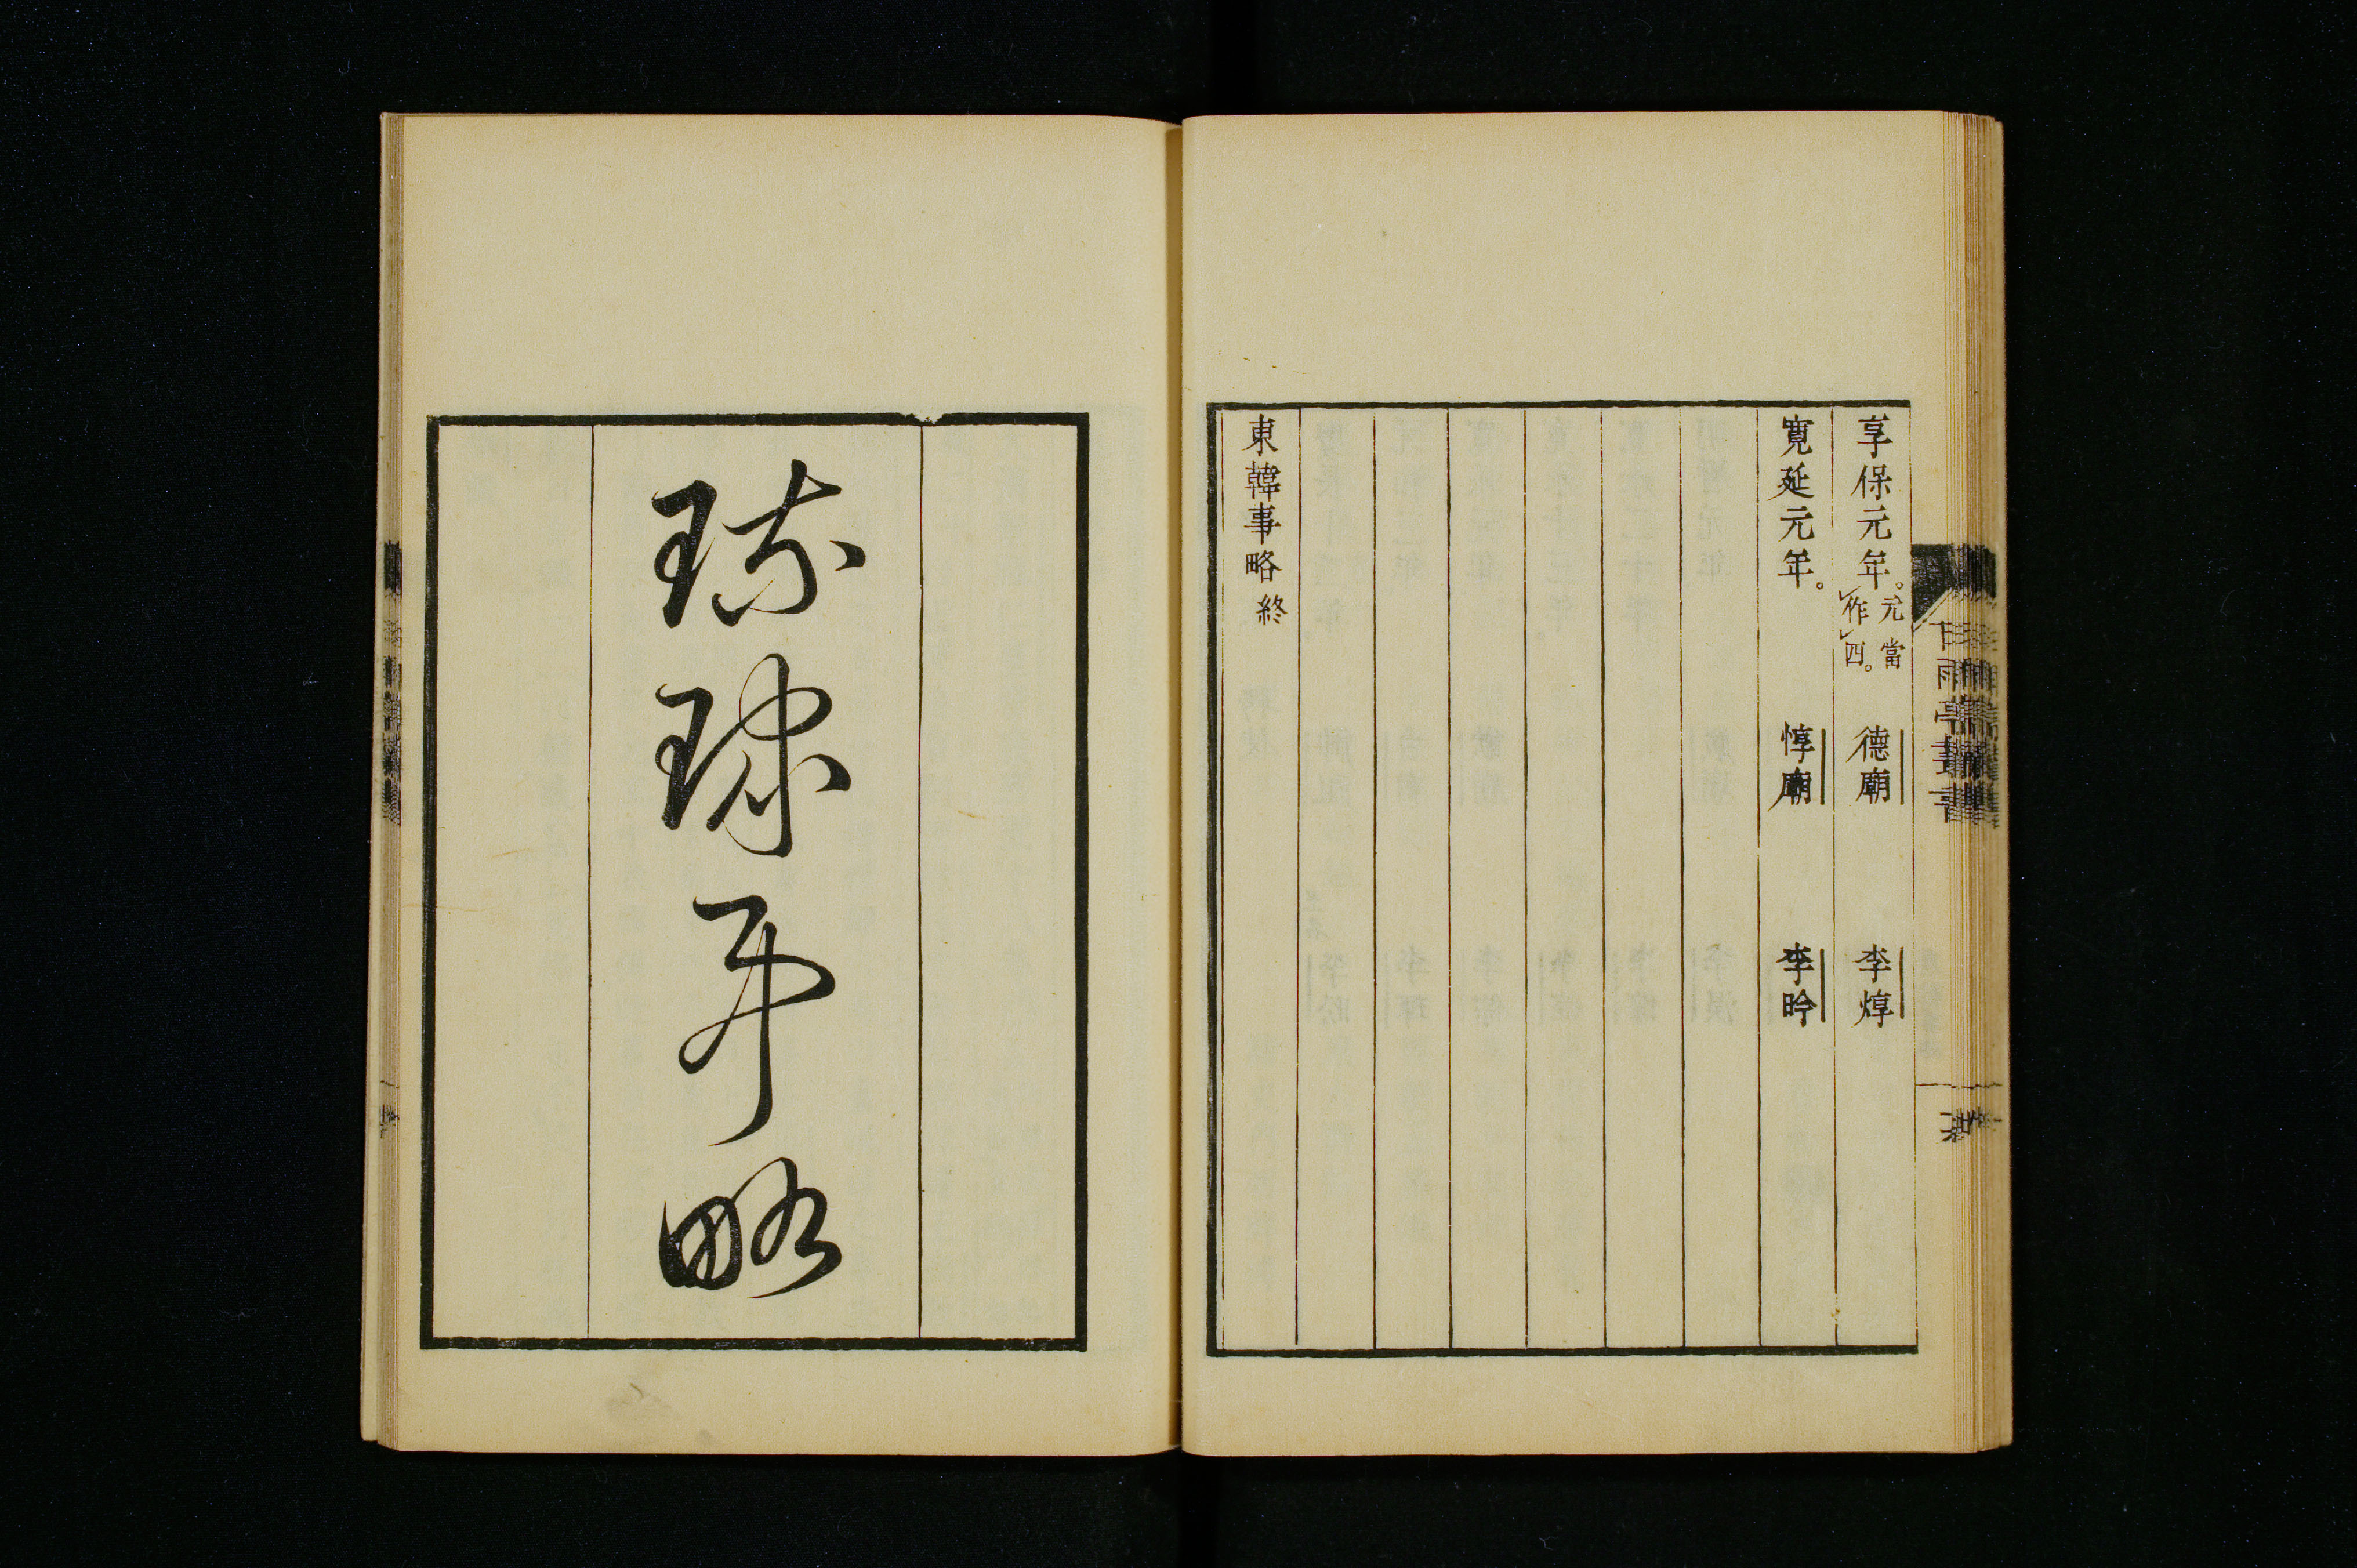 享保元年。元當作四。 德廟 李焞
寛延元年。 惇廟 李昑
東韓事略終
琉球事略